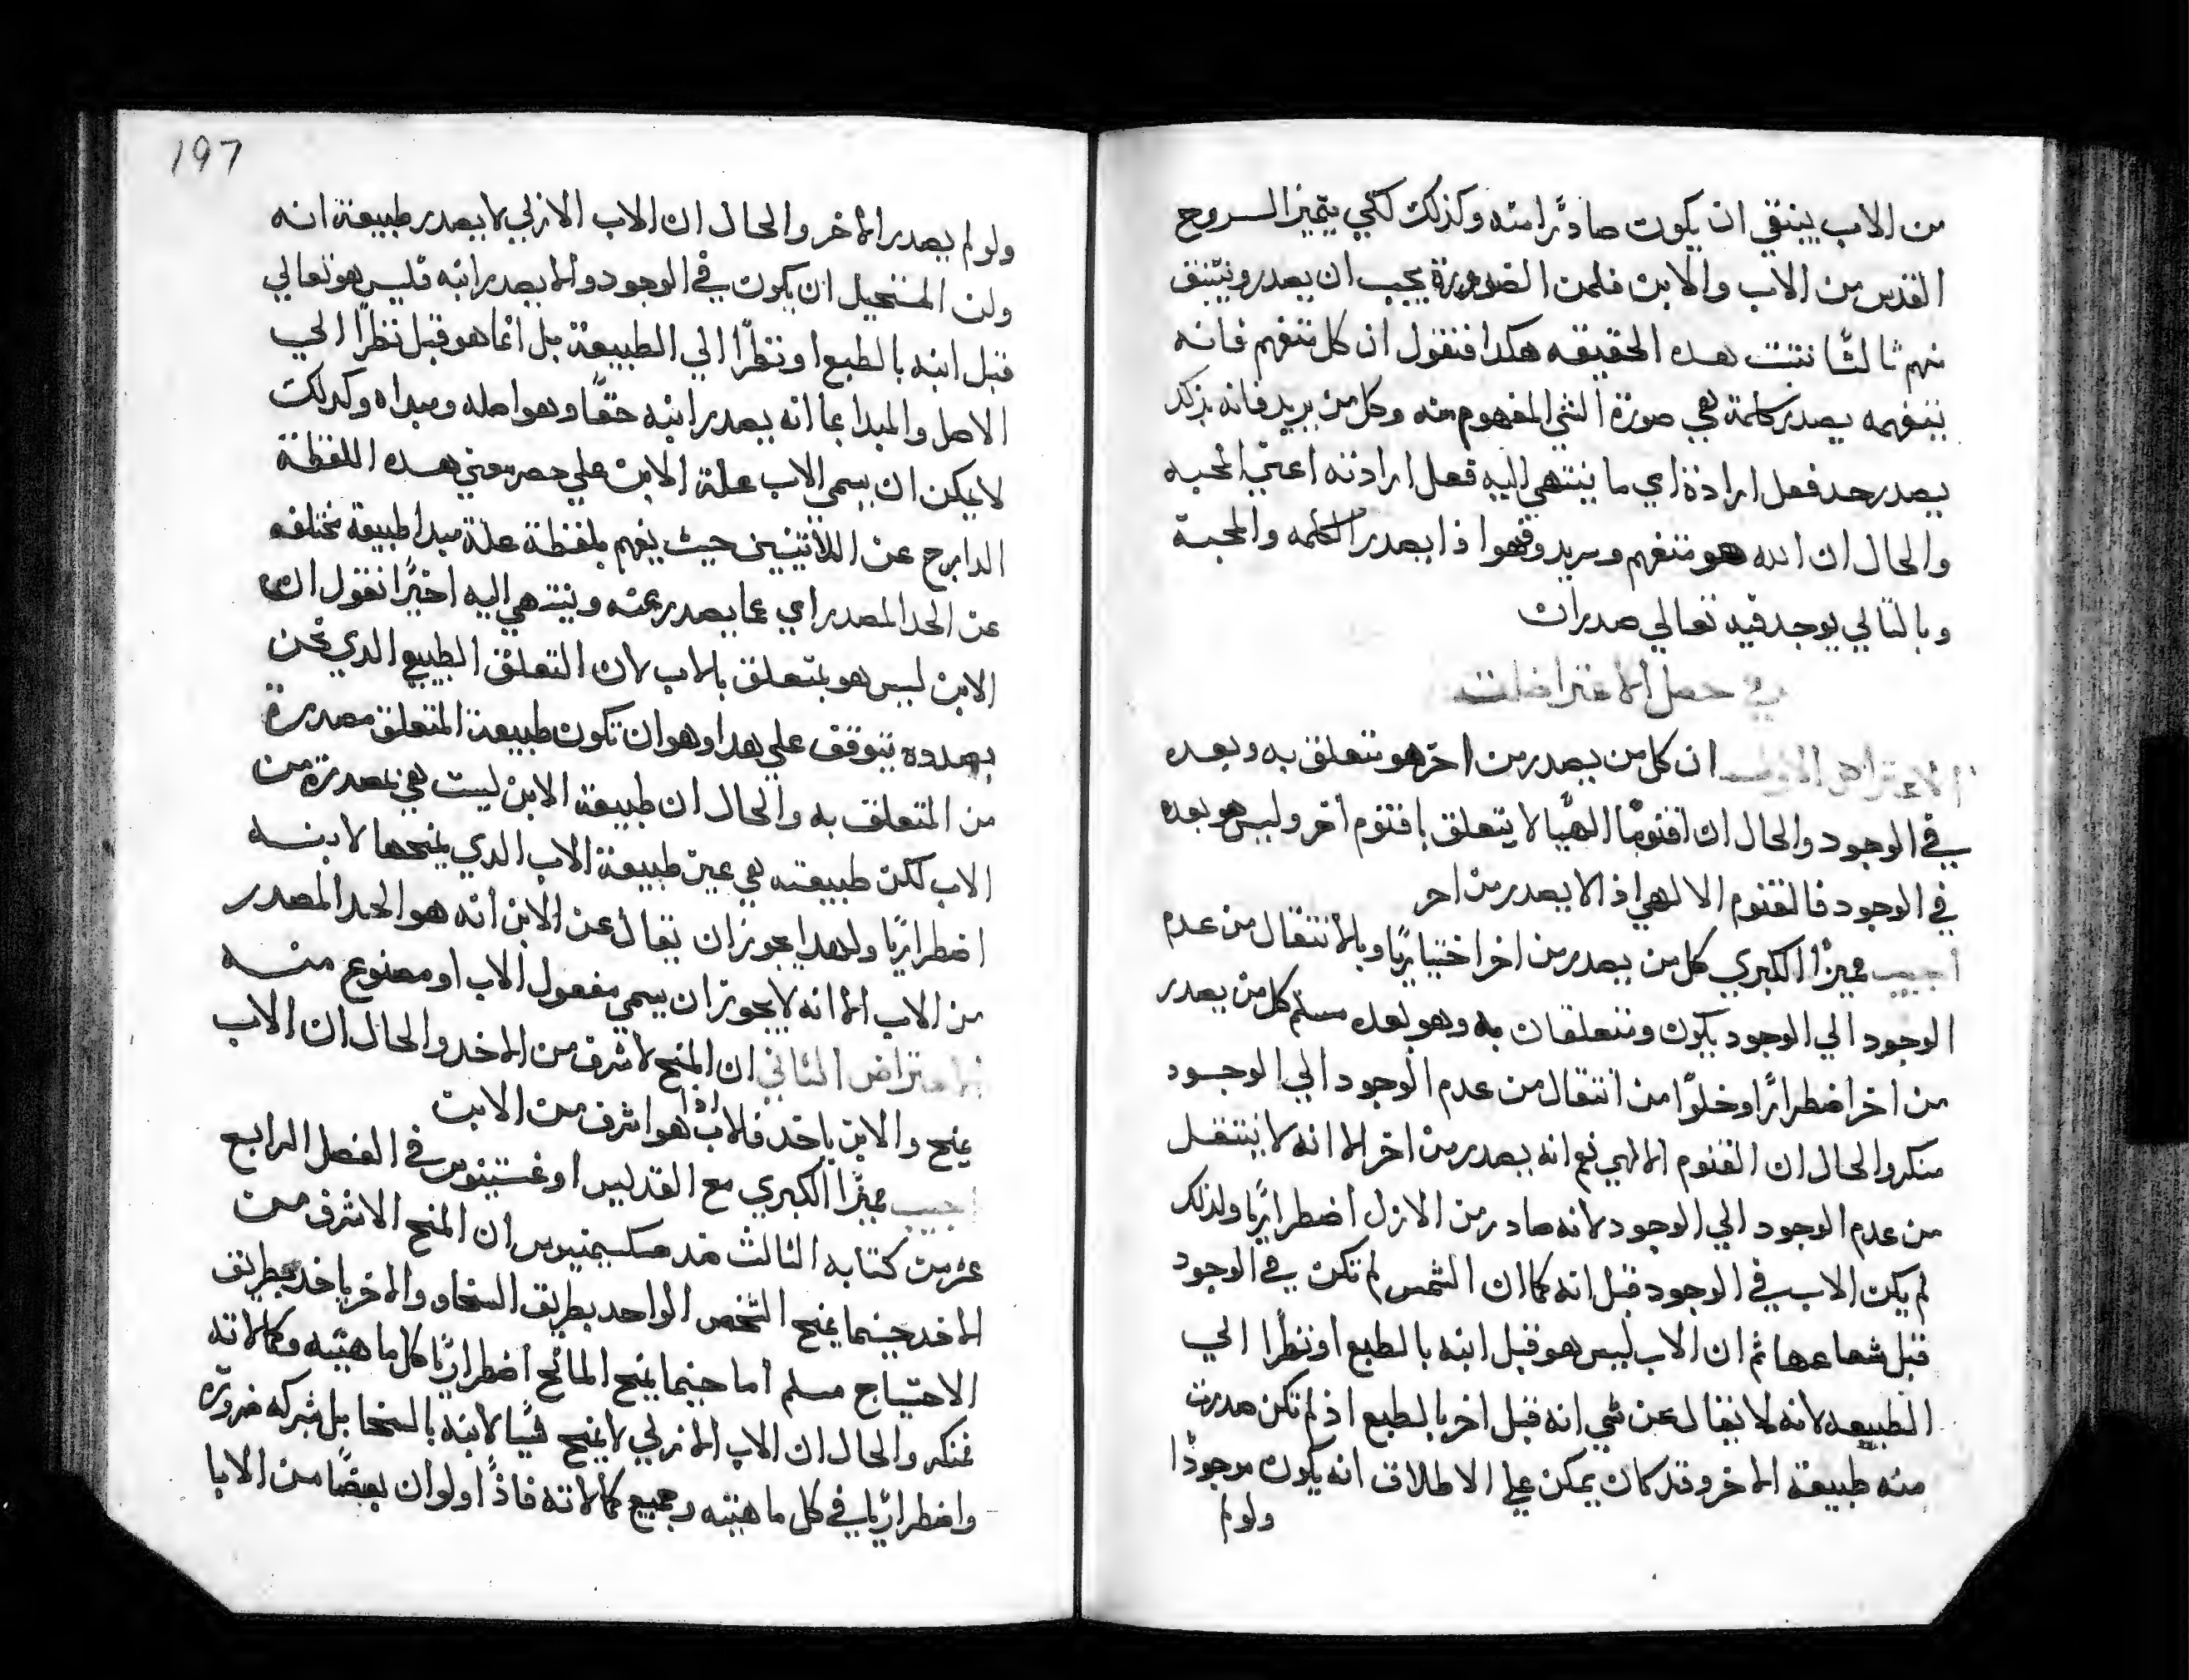 من الاب ينبغي ان يكون صادرًا منه وكذلك لكي يتميز الروح
القدس من الاب والابن فلمن الضرورة يجب ان يصدر وينبثق
منهم ثالثًا نثبت هده الحقيقه هكدا فنقول ان كل متفهم فانه
بتفهمه يصدر كلمة هي صورة الشي المفهوم منه وكل من يريد فانه بذلك
يصدر حد فعل ارادة اي ما ينتهي اليه فعل ارادته اعني المحبه
والحال ان الله هو متفهم ومريد وفهوا ذا يصدر الكلمه والمحبة
وبالتالي يوجد فيه تعالي صدران
في حل الاعتراضات
الاعتراض الاول ان كل من يصدر من اخر هو متعلق به وبعده
في الوجود والحال ان اقنومًا الهيًا لا يتعلق باقنوم اخر وليس هو بعده
في الوجود فالقنوم الالهي اذا لا يصدر من اخر
اجيب مميزًا الكبري كل من يصدر من اخر اختياريًا وبالانتقال من عدم
الوجود الي الوجود يكون ومتعلقان به وهو بعده مسلم كل من يصدر
من اخر اضطرارًا وخلوًا من انتقال من عدم الوجود الي الوجود
منكر والحال ان القنوم الالهي نعم انه يصدر من اخر الا انه لا ينتقل
من عدم الوجود الي الوجود لانه صادر من الازل اضطراريًا ولذلك
لم يكن الاب في الوجود قبل انه كما ان الشمس لم تكن في الوجود
قبل شعاعها ثم ان الاب ليس هو قبل ابنه بالطبع او نظرًا الي
الطبيعه لانه لا يقال عن شي انه قبل اخر بالطبع اذ لم تكن صدرت
منه طبيعة الاخر وقد كان يمكن علي الاطلاق انه يكون موجودًا
ولو لم
197
ولو لم يصدر الاخر والحال ان الاب الازلي لا يصدر طبيعة انه
ولن المستحيل ان يكون في الوجود والا يصدر ابنه فليس هو تعالي
قبل ابنه بالطبع او نظرًا الي الطبيعة بل انما هو قبل نظرًا الي
الاصل والمبدا بما انه يصدر ابنه حقًا وهو اصله ومبداه وكدلك
لا يمكن ان يسمي الاب علة الابن علي حصر معني هده اللفظة
الدارج عن اللاتينيين حيث يفهم بلفظة علة مبدا طبيعة مختلفه
عن الحد المصدر اي عما يصدر عنه وينتهي اليه اخيرًا نقول ان
الابن ليس هو بمتعلق بالاب لان التعلق الطبيعي الدي نحن
بصدده يتوقف علي هدا وهو ان تكون طبيعة المتعلق مصدرة
من المتعلق به والحال ان طبيعة الابن ليست هي بمصدرة من
الاب لكن طبيعته هي عين طبيعة الاب الدي يمنحها لابنه
اضطراريًا ولهدا يجوز ان يقال عن الابن انه هو الحد المصدر
من الاب الا انه لا يجوز ان يسمي مفعول الاب او مصنوع منه
الاعتراض الثاني ان المنح لاشرف من الاخد والحال ان الاب
يمنح والابن ياخد فالاب اذا هو اشرف من الابن
اجيب مميزًا الكبري مع القديس اوغستينوس في الفصل الرابع
عشر من كتابه الثالث ضد مكسيمنيوس ان المنح الاشرف من
الاخد حينما يمنح الشخص الواحد بطريق السخاء والاخر ياخد بطريق
الاحتياج مسلم اما حينما يمنح المانح اضطراريًا كل ماهيته وكمالاته
فمنكر والحال ان الاب الازلي لا يمنح شيًا لابنه بالسخا بل يشركه ضرورة
واضطراريًا في كل ماهيته وجميع كمالاته فاذًا ولو ان بعضًا من الابا